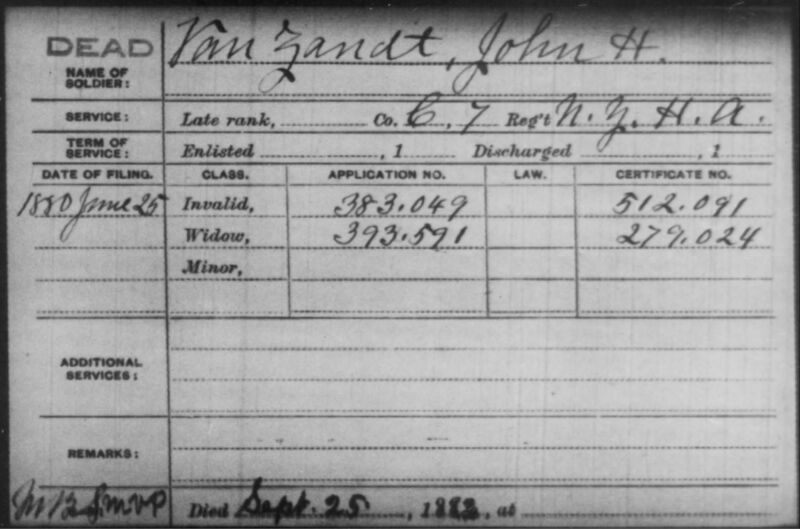 DEAD
Van Zandt, John H.
NAME OF
SOLDIER:
SERVICE: Late rank, Co. C, 7 Reg't N. Y. H. A.
TERM OF
SERVICE: Enlisted , 1 Discharged , 1
DATE OF FILING. CLASS. APPLICATION NO. LAW. CERTIFICATE NO.
1880 June 25 Invalid, 383.049 512.091
Widow, 393.591 279.024
Minor,
ADDITIONAL
SERVICES:
REMARKS:
Died Sept. 25, 1882, at